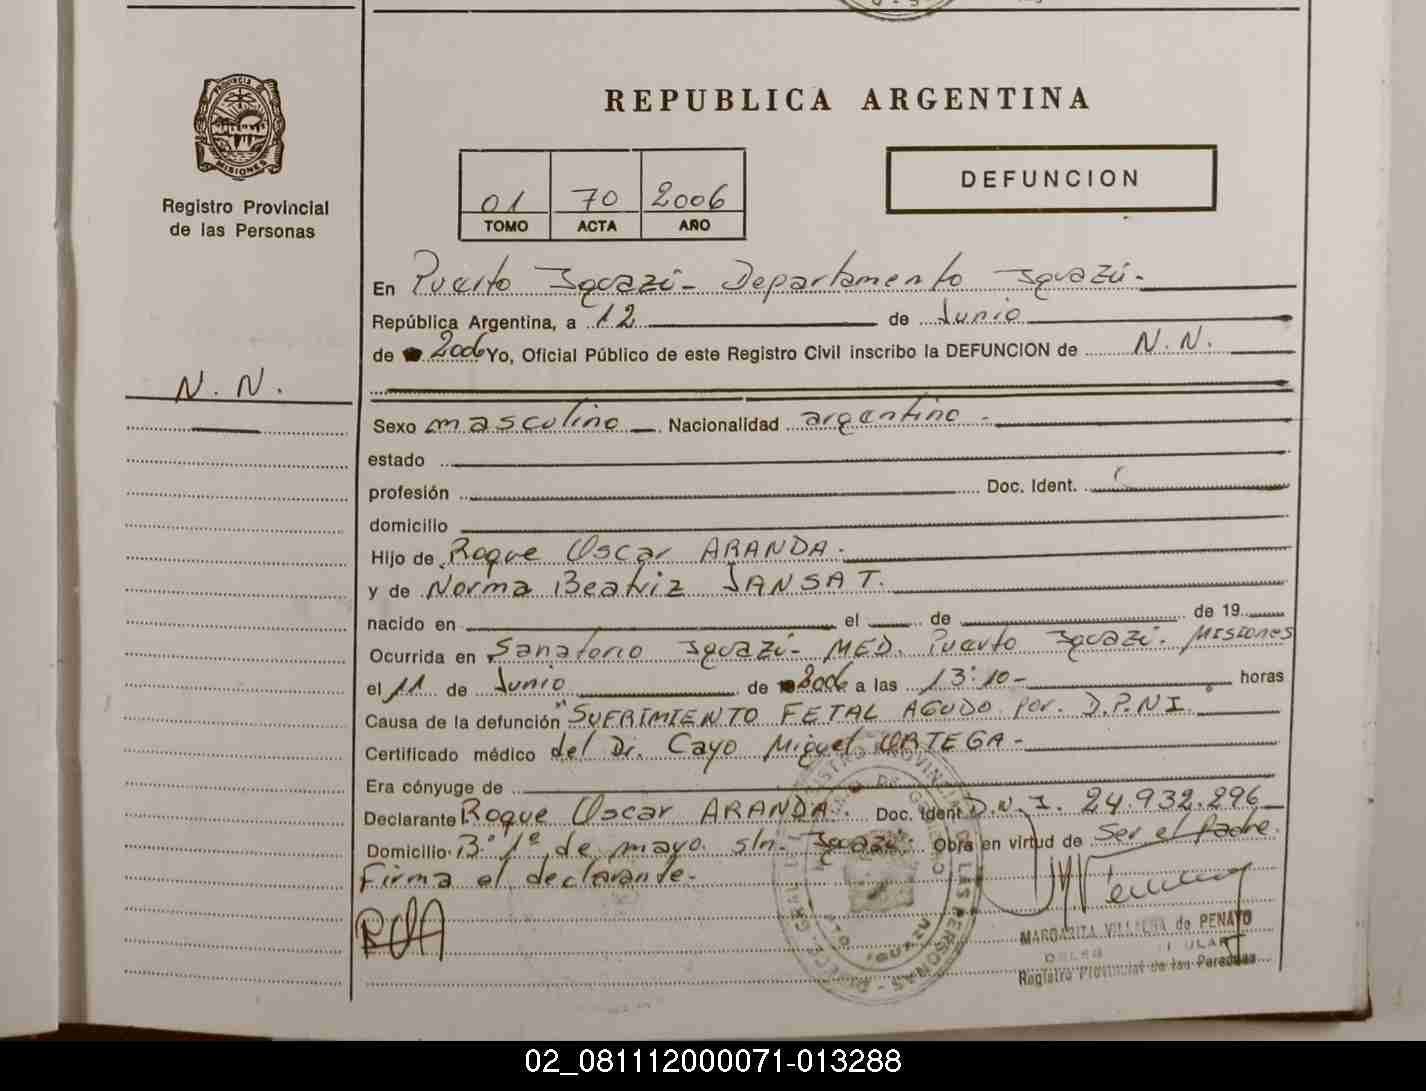 PROVINCIA DE
MISIONES
Registro Provincial
de las Personas
N. N.
REPUBLICA ARGENTINA
01 70 2006
TOMO ACTA AÑO
DEFUNCION
En Puerto Iguazú- Departamento Iguazú.-
República Argentina, a 12 de Junio
de 2006 Yo, Oficial Público de este Registro Civil inscribo la DEFUNCION de N. N.
Sexo masculino Nacionalidad argentino.-
estado
profesión Doc. Ident.
domicilio
Hijo de Roque Oscar ARANDA.
y de Norma Beatriz JANSAT.
nacido en el de de 19
Ocurrida en Sanatorio Iguazú- MED. Puerto Iguazú. MISIONES
el 11 de Junio de 2006 a las 13:10- horas
Causa de la defunción "SUFRIMIENTO FETAL AGUDO por. D.P.N.I.
Certificado médico del Dr. Cayo Miguel ORTEGA-
Era cónyuge de
Declarante Roque Oscar ARANDA. Doc. Ident. D.N.I. 24.932.296
Domicilio B° 1° de mayo. s/n. Iguazú. Obra en virtud de Ser el Padre.
Firma el declarante.-
MARGARITA VILLALBA de PENAYO
Registro Provincial de las Personas
02_081112000071-013288